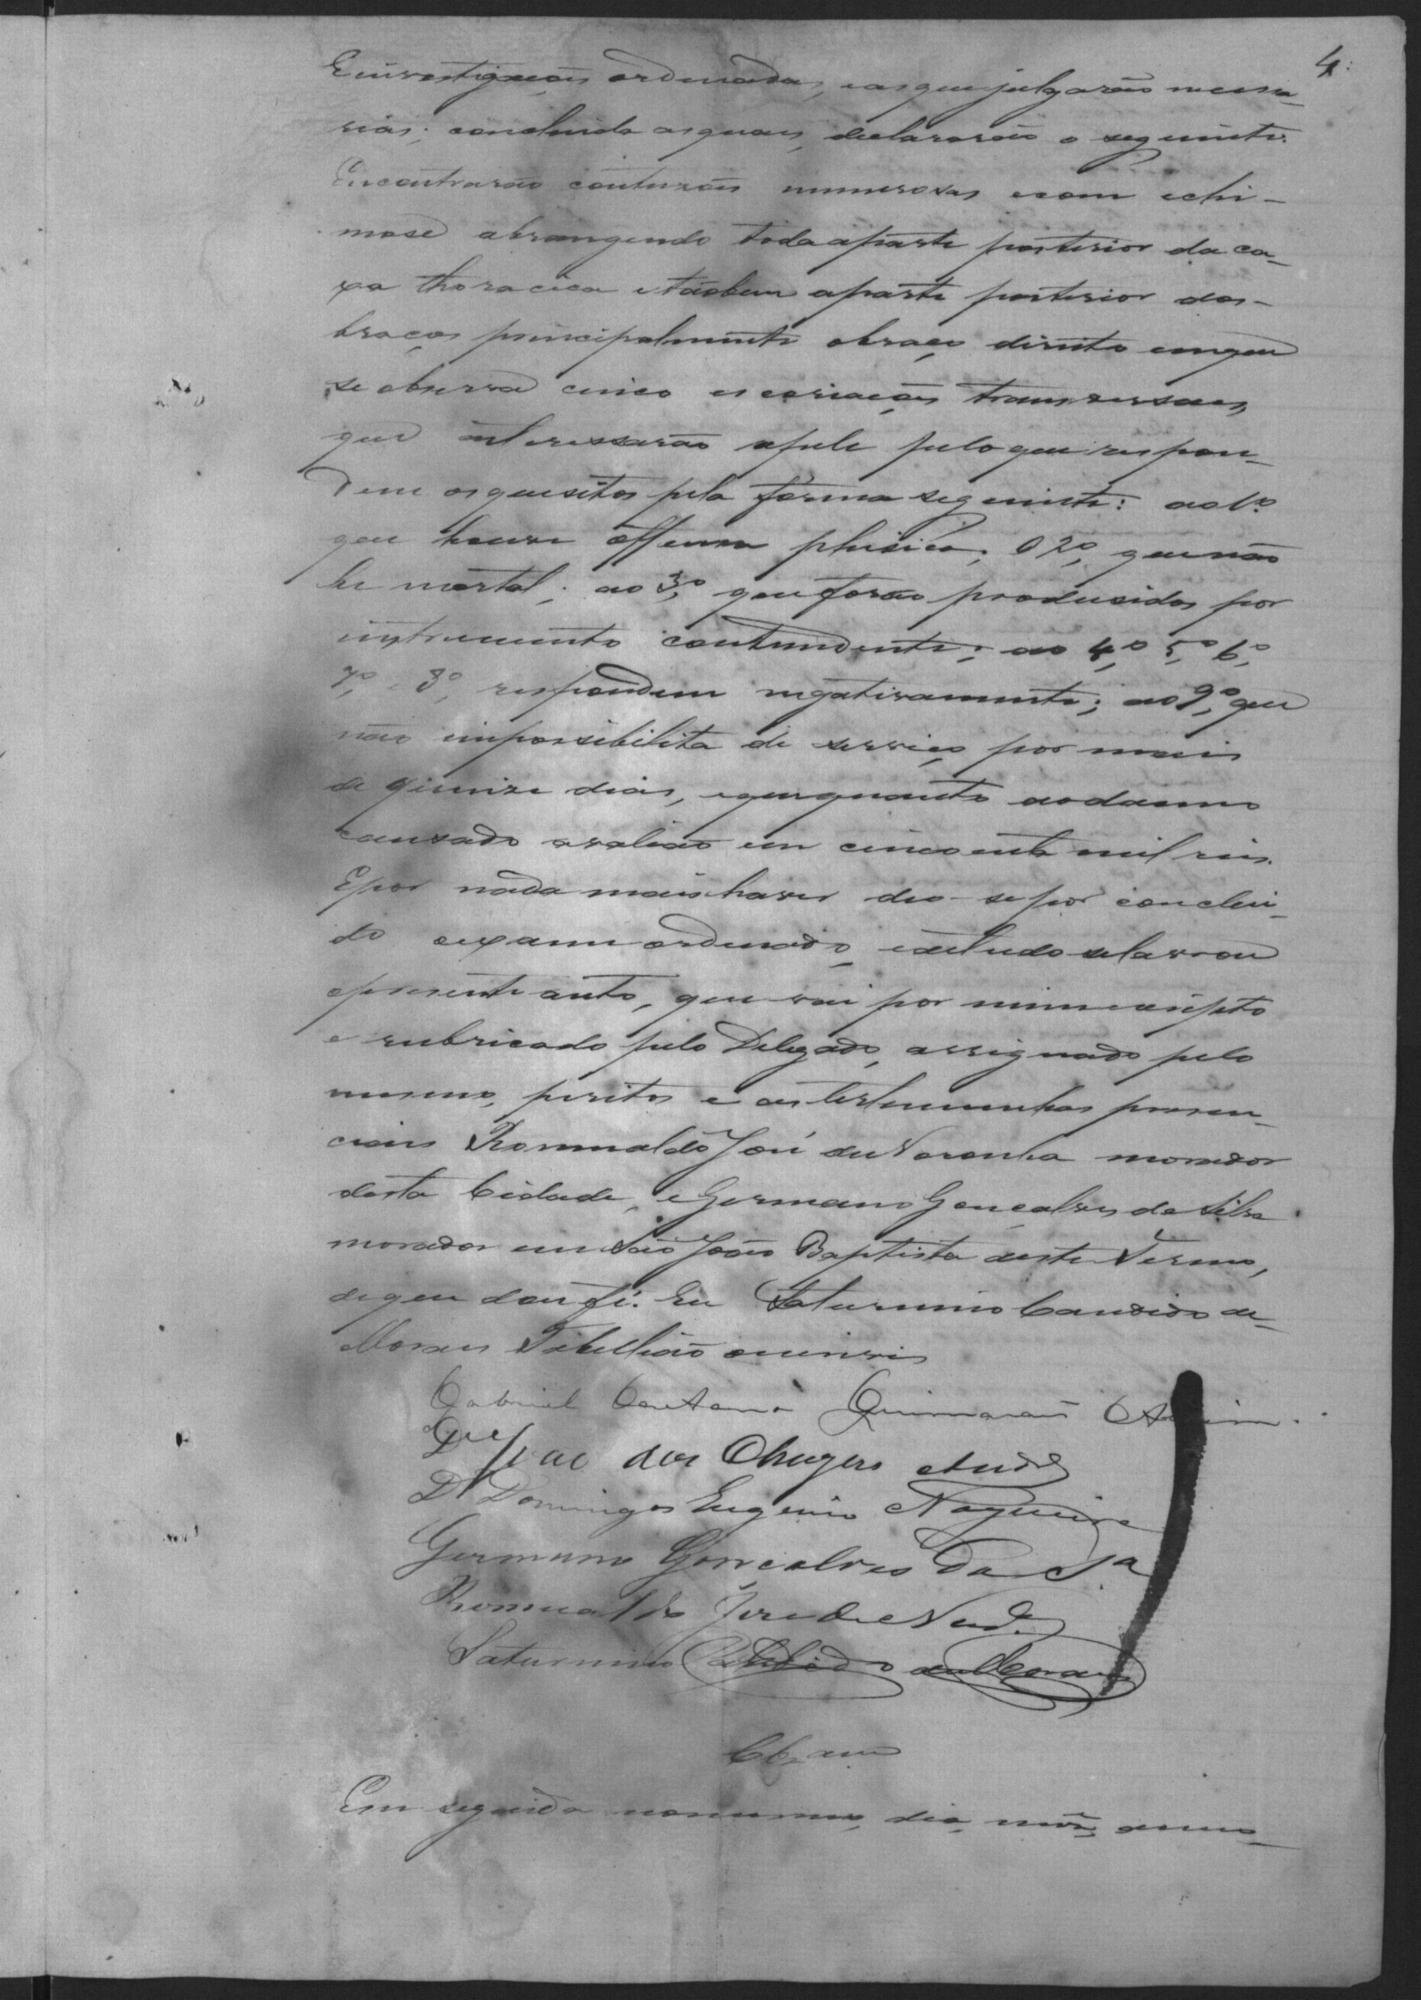 4.
E investigações ordenadas, e as que julgarão necessa-
rias; concluida as quaes, declararão o seguinte:
Encontrarão contuzões numerosas e com echi-
mose abrangendo toda a parte posterior da ca-
xa thoracica e tãobem a parte posterior dos
braços principalmente o braço direito em que
se observa cinco escoriações transversaes,
que interessarão a pele pelo que respon-
dem os quesitos pela forma seguinte: ao 1º
que houve offensa phisica; O 2º, que não
he mortal; ao 3º, que forão produsidas por
instrumento contundente; ao 4º, 5º, 6º,
7º, e 8º, respondem negativamente; ao 9º, que
não impossibilita de serviço por mais
de quinze dias, e que quanto ao damno
causado avalião em cincoenta mil reis.
E por nada mais haver deo-se por conclui-
do o exame ordenado, e de tudo se lavrou
o presente auto, que vai por mim escripto
e rubricado pelo Delegado, assignado pelo
mesmo, peritos e as testemunhas presen-
ciais Romualdo José de Noronha morador
desta Cidade, e Germano Gonçalves da Silva
morador em São João Baptista deste Termo,
do que dou fé. Eu Saturnino Candido de
Moraes Tabellião o escrevi
Gabriel Caetano Guimarães
dos
Dr Domingos Eugenio Nogueira
Germano Gonçalves Da Sª
Romualdo José de
Saturnino Candido de Moraes
Clzam
Em seguida no mesmo, dia, mês, anno